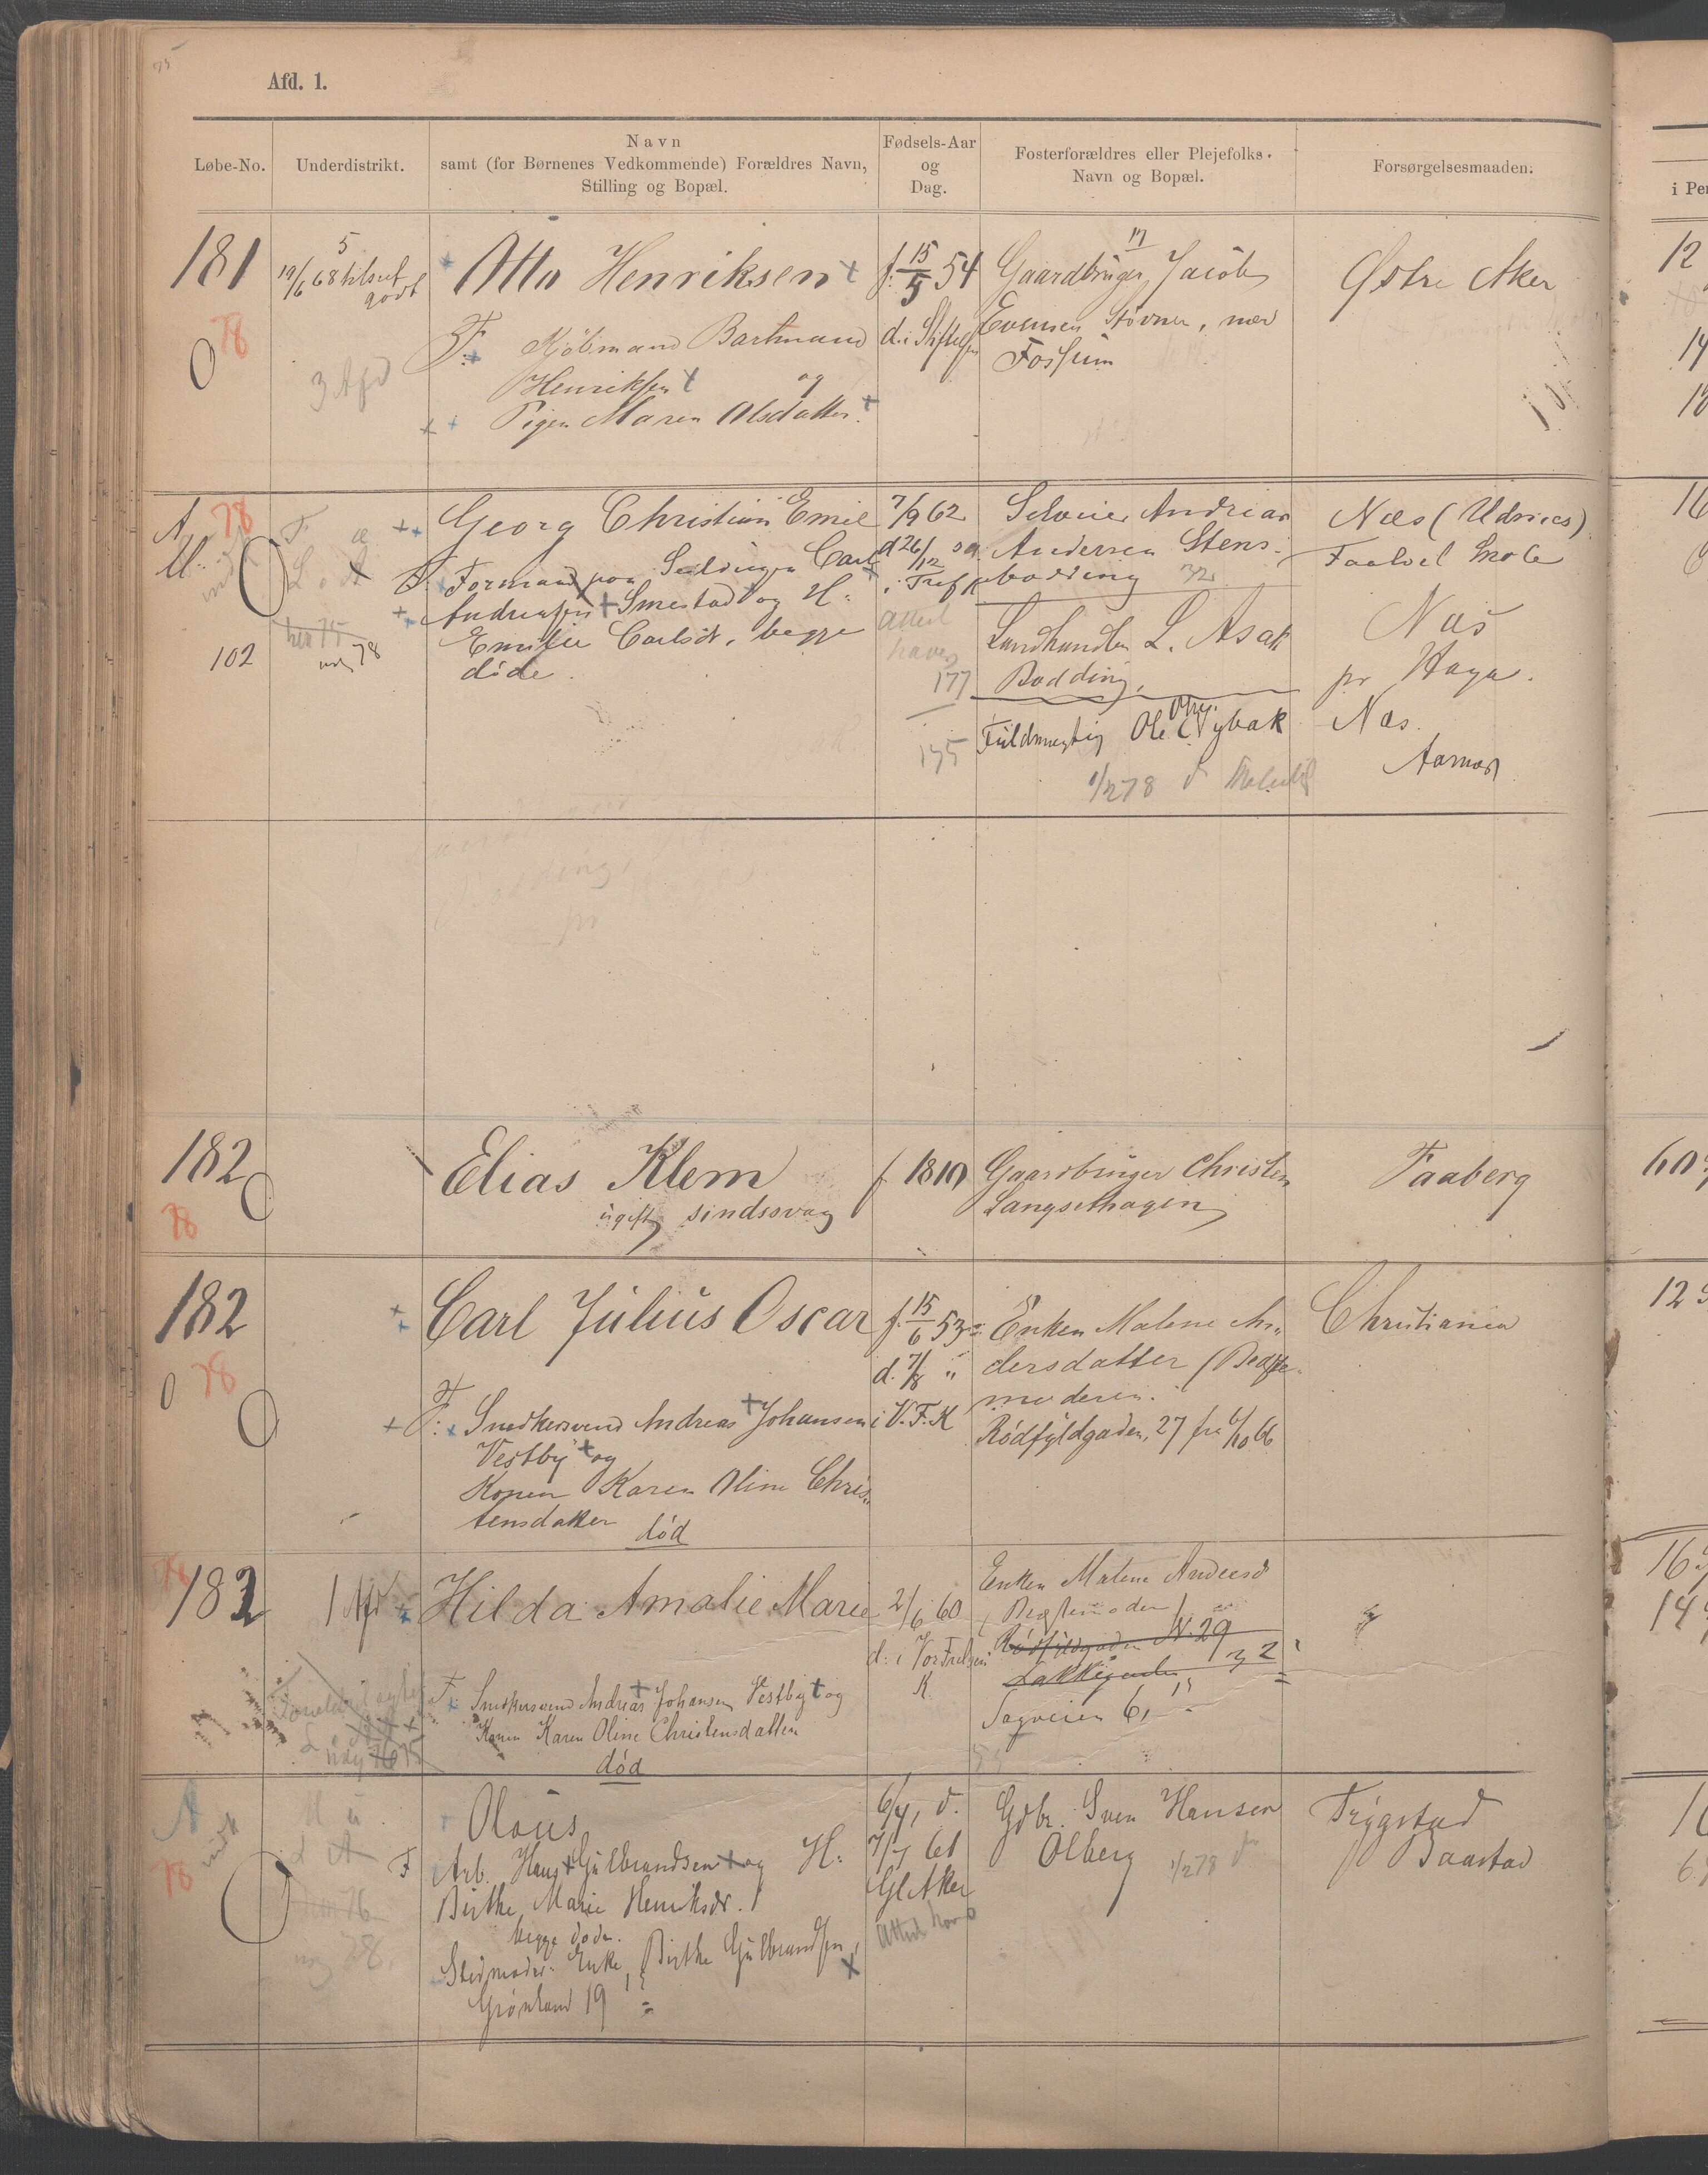 75
Afd. 1.
Løbe-No.
Underdistrikt.
Navn
samt (for Børnenes Vedkommende) Forældres Navn,
Stilling og Bopæl.
Fødsels-Aar
og
Dag.
Fosterforældres eller Plejefolks
Navn og Bopæl.
Forsørgelsesmaaden.
i Pe
181
5
19/6 68 tilseet
godt
78
3 Afd
Otto Henriksen
F: Kjøbmand Bartmand
Henriksen og
Pigen Maren Olsdatter.
f. 15/5 54
d. i Stiftelsen
Gaardbruger Jacob
Evensen Støvner, ved
Fossum
Østre Aker
A 78
U.
102
F
L. A
her 75
78
Georg Christian Emil
F. Formand paa Carl
Andreasen Smestad og H:
Emilie Carlsdt. begge
døde.
7/9 62
d 26/12 s a
i Tref K
Attest
haves
177
175
Andreas
Andersen Stens-
bodding 32
Landhandler L. Asak
Bodding,
Fuldmægtig Ole Chr. Nybak
1/2 78
Næs (Udnæs)
Næs
pr Haga.
Næs.
Aarnæs
182
78
Elias Klem
ugift, sindssvag
f. 1810
Gaardbruger Christen
Langsethagen
Faaberg
182
0 78
Carl Julius Oscar
F: Snedkersvend Andreas Johansen
Vestby og
Konen Karen Oline Chris-
tensdatter død
f. 15/6 53
d. 7/8 "
i V. F. K
Enken Malene An-
dersdatter (Bedste-
moderen.
Rødfyldgaden, 27 fra 6/10 66
Christiania
78
182
1 Afd
Hilda Amalie Marie
F: Snedkersvend Andreas Johansen Vestby og
Konen Karen Oline Christensdatter
død
2/6 60
d: i Vor Frelsers
K.
Enken Malene Andersd
(Bedstemoder)
Rødfyldgaden N. 29
Lakkegaden, 32
Sagveien 6,
A
78
U
L A
76
78.
Olaus
F Arb. Hans Gulbrandsen og H:
Birthe Marie Henriksdr.
begge døde.
Stedmoder: Enke, Birthe Gulbrandsen,
Grønland 19
6/4, d.
7/7 61
Gl Aker
Attest haves
Gdbr. Sven Hansen
Olberg 1/2 78
Trygstad
Baastad
12
14
18
16
60
12
16
14